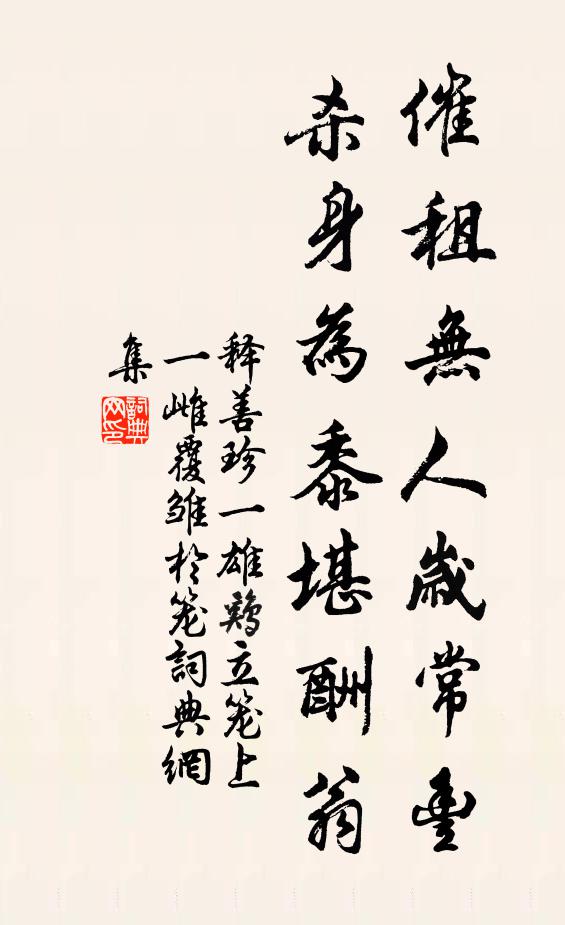 催租無人歲常豐
杀身為黍堪酬翁
释善珍一雄鷄立笼上
一雌覆雏於笼詞典網
集
詞典
网印